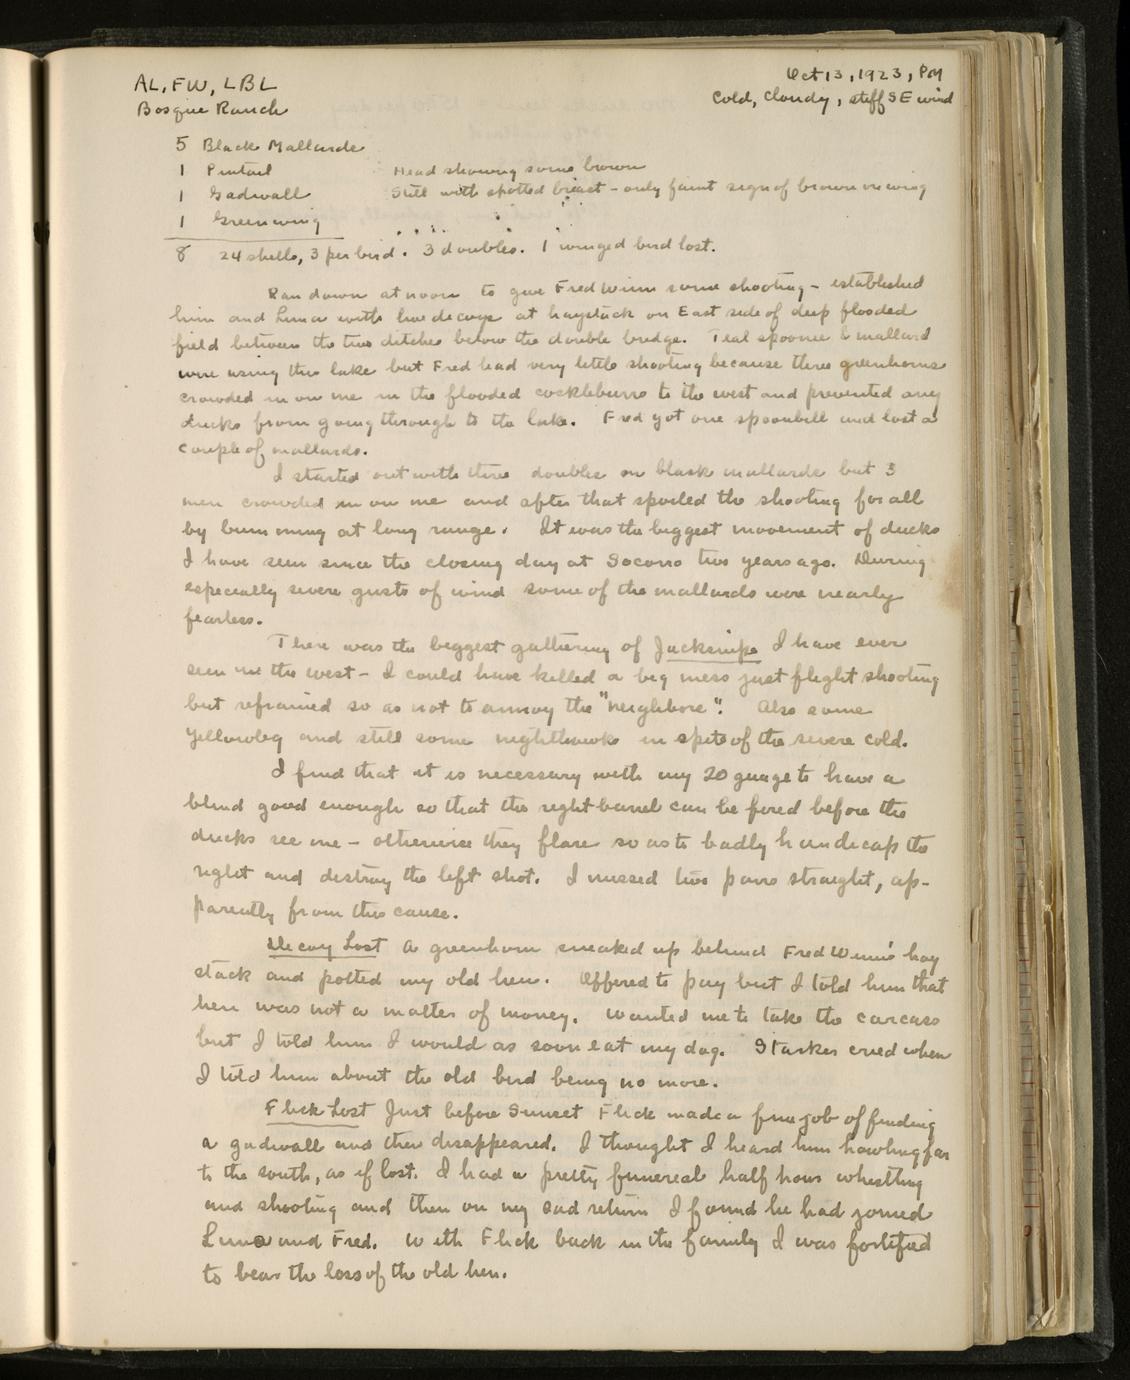 AL, FW, LBL
Bosque Ranch
Oct 13, 1923, PM
Cold, cloudy, stiff SE wind
5 Black Mallards
1 Pintail Head showing some brown
1 Gadwall Still with spotted breast - only faint sign of brown on wing
1 Greenwing " " " "
8 24 shells, 3 per bird. 3 doubles. 1 winged bird lost.
Ran down at noon to give Fred Winn some shooting - established
him and Luna with live decoys at haystack on East side of deep flooded
field between the two ditches below the double bridge. Teal spoonie & mallard
were using this lake but Fred had very little shooting because three greenhorns
crowded in on me in the flooded cockleburrs to the west and prevented any
ducks from going through to the lake. Fred got one spoonbill and lost a
couple of mallards.
I started out with three doubles on black mallards but 3
men crowded in on me and after that spoiled the shooting for all
by bumming at long range. It was the biggest movement of ducks
I have seen since the closing day at Socorro two years ago. During
especially severe gusts of wind some of the mallards were nearly
fearless.
There was the biggest gathering of Jacksnipe I have ever
seen in the west - I could have killed a big mess just flight shooting
but refrained so as not to annoy the "neighbors". Also some
yellowleg and still some nighthawks in spite of the severe cold.
I find that it is necessary with my 20 guage to have a
blind good enough so that the right barrel can be fired before the
ducks see me - otherwise they flare so as to badly handicap the
right and destroy the left shot. I missed two pairs straight, ap-
parently from this cause.
Decoy Lost A greenhorn sneaked up behind Fred Winn's hay
stack and potted my old hen. Offered to pay but I told him that
hen was not a matter of money. Wanted me to take the carcass
but I told him I would as soon eat my dog. Starker cried when
I told him about the old bird being no more.
Flick Lost Just before Sunset Flick made a fine job of finding
a gadwall and then disappeared. I thought I heard him howling far
to the south, as if lost. I had a pretty funereal half hour whistling
and shooting and then on my sad return I found he had joined
Luna and Fred. With Flick back in the family I was fortified
to bear the loss of the old hen.